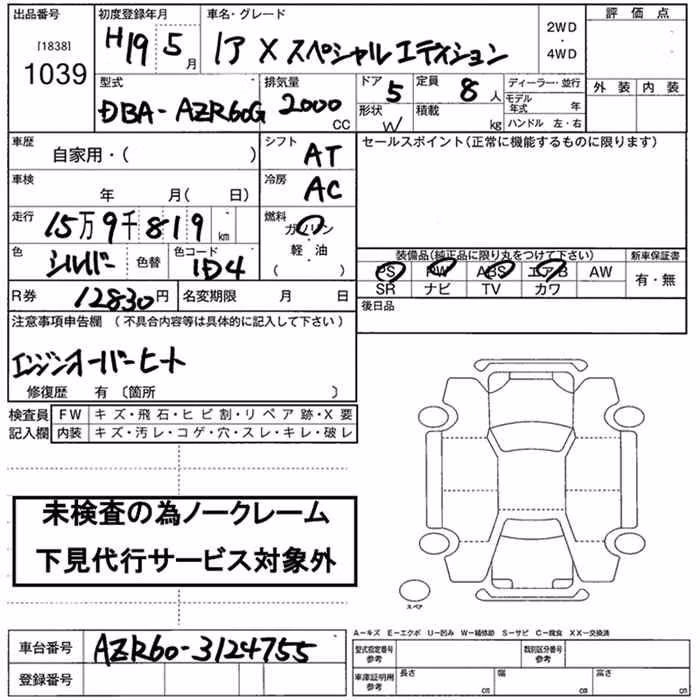 出品番号 初度登録年月 車名・グレード 2WD ・ 4WD 評価点
[1838] 1039 H19 5月 ノア X スペシャルエディション
外装 内装
型式 排気量 ドア 5 定員 8人 ディーラー・並行
DBA-AZR60G 2000 CC 形状 W 積載 kg モデル年式 年
ハンドル 左・右
車歴 自家用・( ) シフト AT セールスポイント(正常に機能するものに限ります)
車検 年 月( 日) 冷房 AC
走行 15万9千819 km 燃料 ガソリン・軽・油 ( )
色 シルバー 色替 色コード 1D4
装備品(純正品に限り丸をつけて下さい) 新車保証書
PS PW ABS エアB AW 有・無
SR ナビ TV カワ
R券 12830円 名変期限 月 日 後日品
注意事項申告欄 (不具合内容等は具体的に記入して下さい)
エンジンオーバーヒート
修復歴 有 〔箇所 〕
検査員 FW キズ・飛石・ヒビ割・リペア跡・X要
記入欄 内装 キズ・汚レ・コゲ・穴・スレ・キレ・破レ
未検査の為ノークレーム
下見代行サービス対象外
スペア
A-キズ E-エクボ U-凹み W-補修跡 S-サビ C-腐食 XX-交換済
車台番号 AZR60-3124755 型式指定番号 参考 類別区分番号 参考
登録番号 車庫証明用 参考 長さ cm 幅 cm 高さ cm